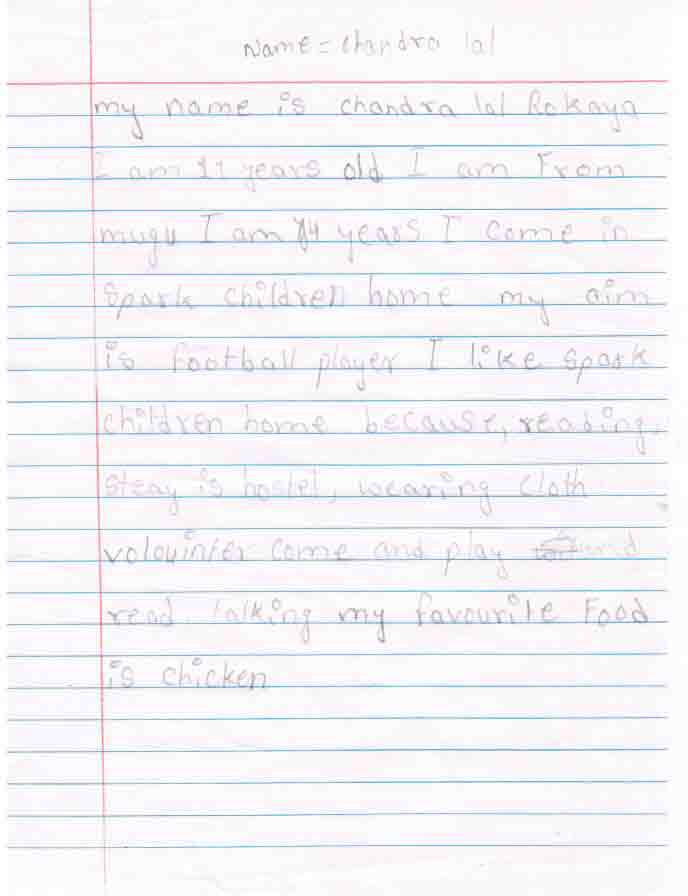 Name = chandra lal
my name is chandra lal Rokaya
I am 11 years old I am From
mugu I am 14 years I come in
Spark children home my aim
is football player I like spark
children home because, reading,
steay is hostel, wearing cloth
volouinter come and play and
read. talking my favourite Food
is chicken